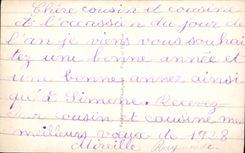 Chère cousin et cousine
À l'occassion du jour de
l'an je viens vous souhai
tez une bonne année et
une bonne annez ainsi
qu'à Simone. Recevez
cousin et cousine mes
meilleurs vœux de 1928
Mireille